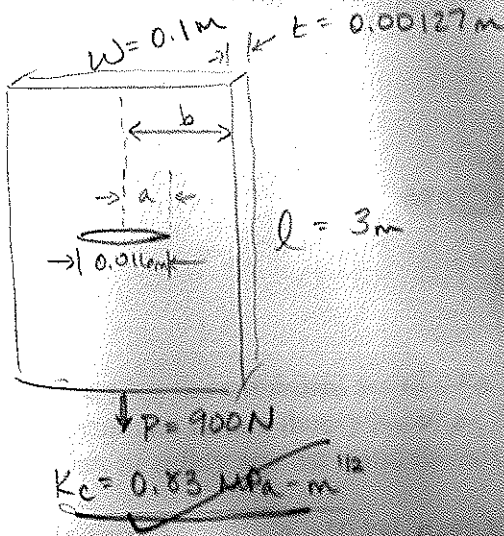 W = 0.1m
t = 0.00127m
b
a
l = 3m
0.016m
P = 900N
Kc = 0.83 MPa-m^1/2